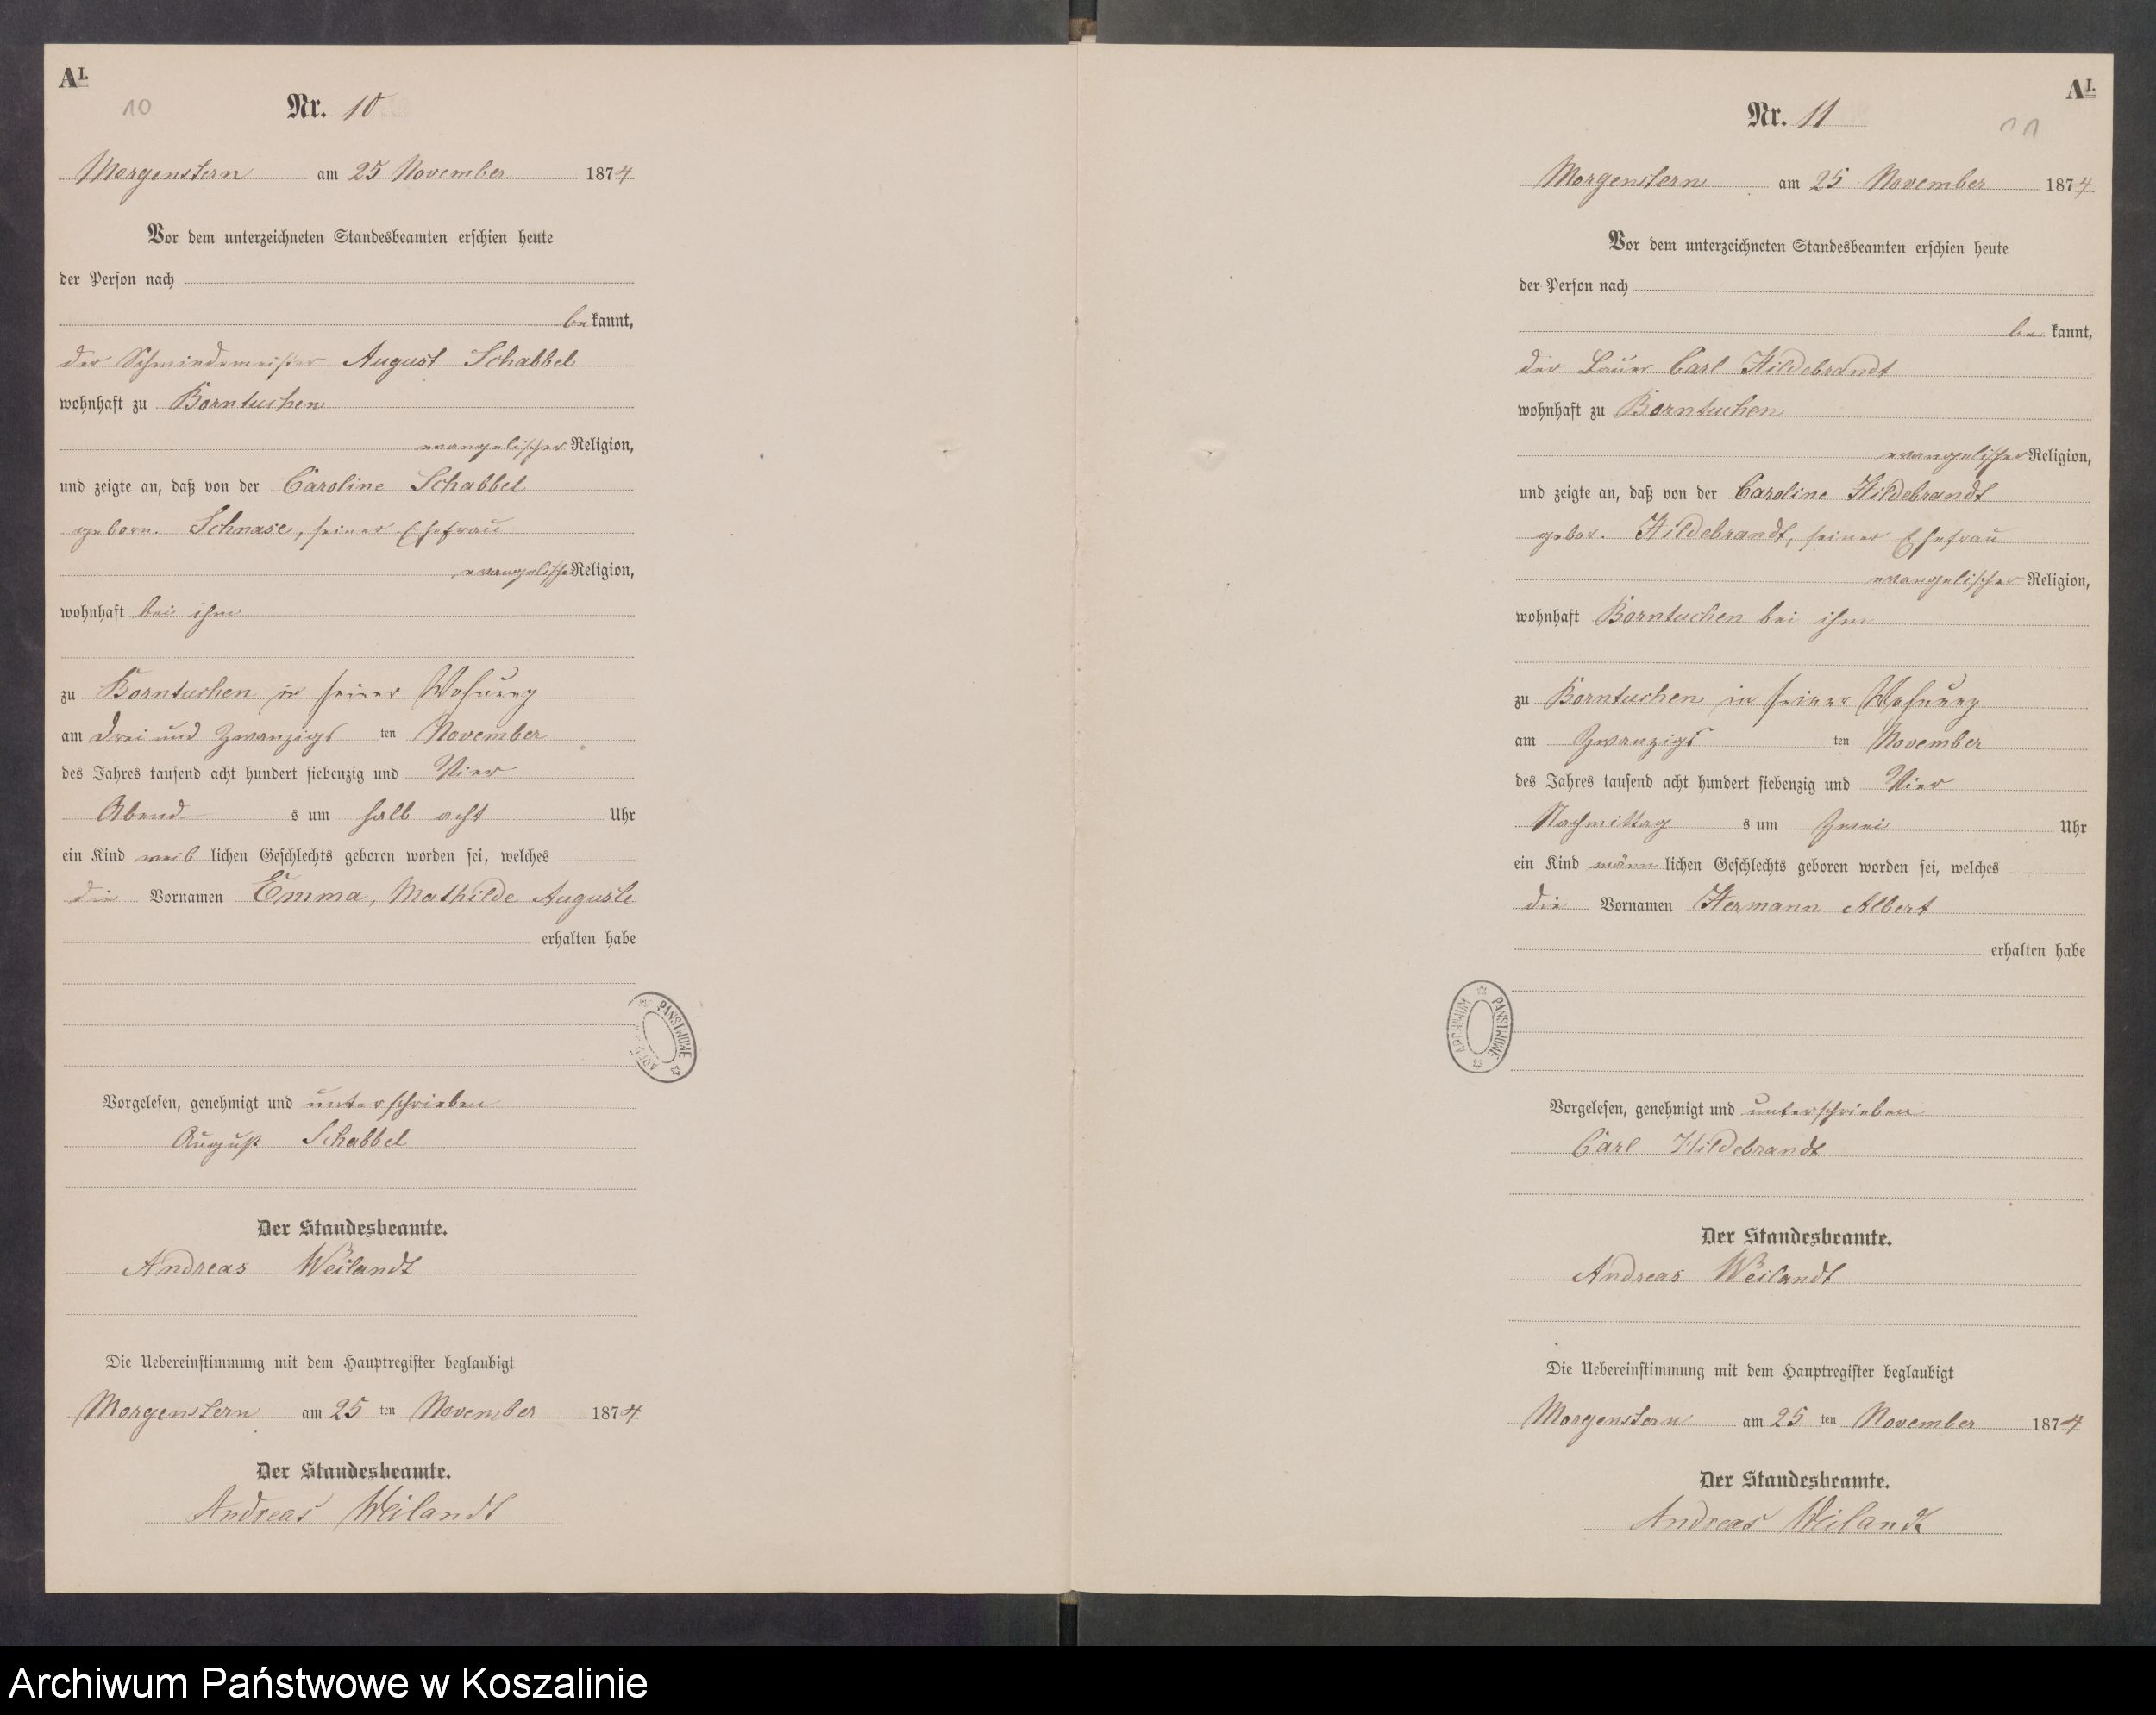 A I.
10
Nr. 10
Morgenstern am 25 November 1874
Vor dem unterzeichneten Standesbeamten erschien heute
der Person nach
bekannt,
der Schmiedemeister August Schabbel
wohnhaft zu Borntuchen
evangelischer Religion,
und zeigte an, daß von der Caroline Schabbel
geborn. Schnase, seiner Ehefrau
evangelischer Religion,
wohnhaft bei ihm
zu Borntuchen in seiner Wohnung
am drei und zwanzigs ten November
des Jahres tausend acht hundert siebenzig und Vier
Abend s um halb acht Uhr
ein Kind weib lichen Geschlechts geboren worden sei, welches
die Vornamen Emma, Mathilde Auguste
erhalten habe
PAŃSTWOWE
Vorgelesen, genehmigt und unterschrieben
August Schabbel
Der Standesbeamte.
Andreas Weilandt
Die Uebereinstimmung mit dem Hauptregister beglaubigt
Morgenstern am 25 ten November 1874
Der Standesbeamte.
Andreas Weilandt
A I.
11
Nr. 11
Morgenstern am 25 November 1874
Vor dem unterzeichneten Standesbeamten erschien heute
der Person nach
be kannt,
der Bauer Carl Hildebrandt
wohnhaft zu Borntuchen
evangelischer Religion,
und zeigte an, daß von der Caroline Hildebrandt
gebor. Hildebrandt, seiner Ehefrau
evangelischer Religion,
wohnhaft Borntuchen bei ihm
zu Borntuchen in seiner Wohnung
am Zwanzigs ten November
des Jahres tausend acht hundert siebenzig und Vier
Nachmittag s um Zwei Uhr
ein Kind männ lichen Geschlechts geboren worden sei, welches
die Vornamen Hermann Albert
erhalten habe
ARCHIWUM PAŃSTWOWE
Vorgelesen, genehmigt und unterschrieben
Carl Hildebrandt
Der Standesbeamte.
Andreas Weilandt
Die Uebereinstimmung mit dem Hauptregister beglaubigt
Morgenstern am 25 ten November 1874
Der Standesbeamte.
Andreas Weilandt
Archiwum Państwowe w Koszalinie